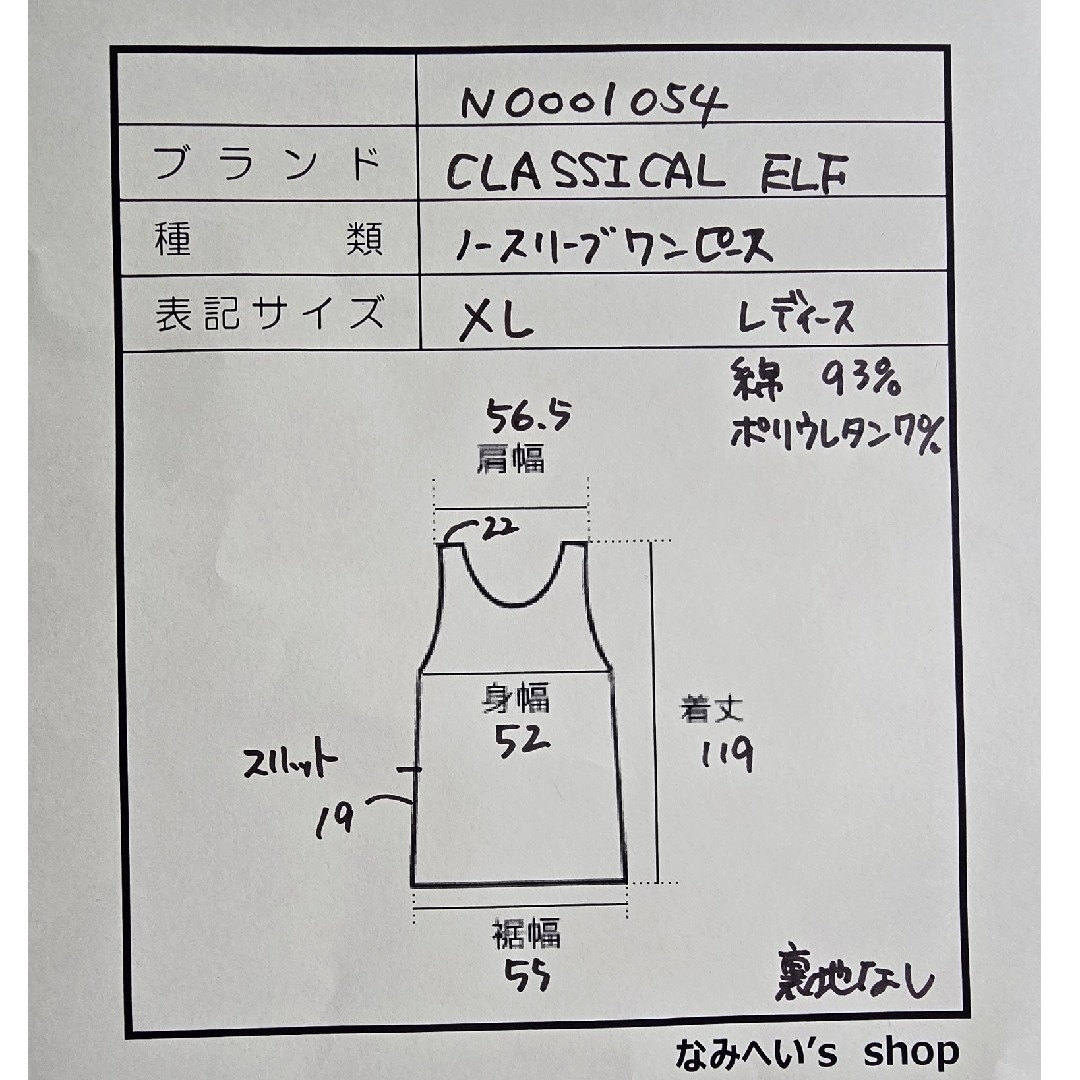 NO001054
ブランド CLASSICAL ELF
種類 ノースリーブワンピース
表記サイズ XL レディース
綿 93%
ポリウレタン7%
56.5
肩幅
22
身幅
52
着丈
119
スリット
19
裾幅
55
裏地なし
なみへい's shop